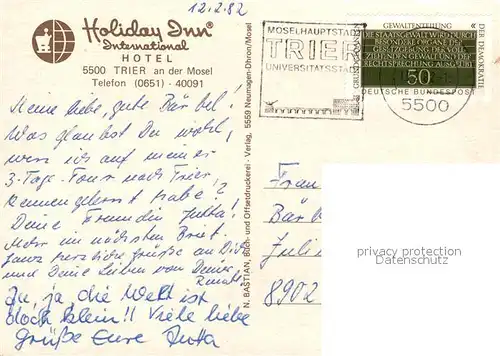 12.2.82
Holiday Inn®
International
HOTEL
5500 TRIER an der Mosel
Telefon (0651) - 40091
Meine liebe, gute Bärbel!
Was glaubst Du wohl,
wen ich auf meiner
3-Tage-Tour nach Trier,
kennengelernt habe?
Deine Freundin Jutta!
Mehr im nächsten Brief.
Ganz herzliche Grüße an Dich
und Deine Lieben von Deiner
Renate
Ja, ja, die Welt ist
doch klein!! Viele liebe
Grüße Eure Jutta
N. BASTIAN, Buch- und Offsetdruckerei - Verlag, 5559 Neumagen-Dhron/Mosel
MOSELHAUPTSTADT
TRIER
UNIVERSITÄTSSTADT
GEWALTENTEILUNG
DIE STAATSGEWALT WIRD DURCH
BESONDERE ORGANE DER
GESETZGEBUNG DER VOLL
ZIEHENDEN GEWALT UND DER
RECHTSPRECHUNG AUSGEÜBT
50
DER DEMOKRATIE
DEUTSCHE BUNDESPOST
5500
Frau
Bär
Juli
8902
privacy protection
Datenschutz